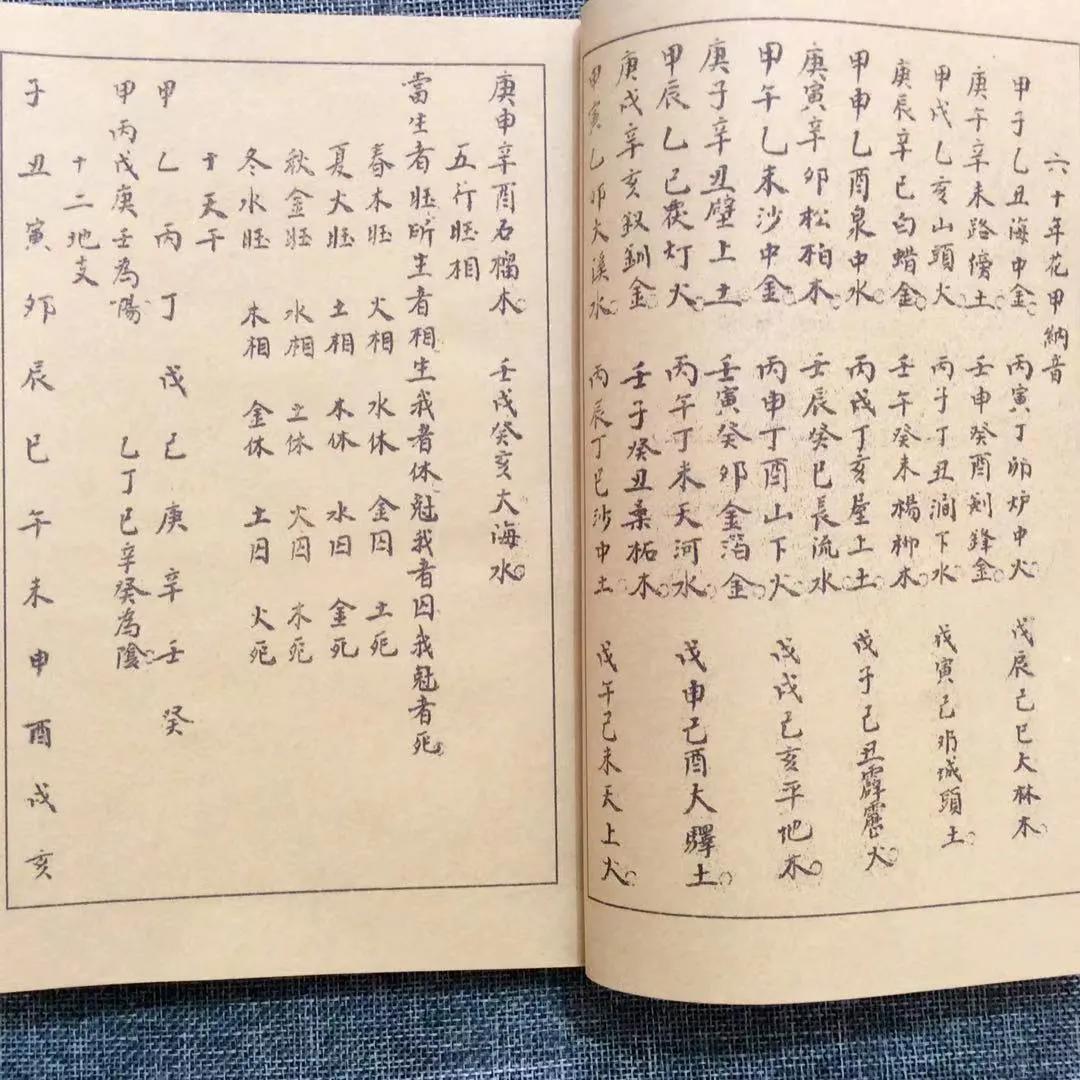 六十年花甲納音
甲子乙丑海中金 丙寅丁卯炉中火 戊辰己巳大林木
庚午辛未路傍土 壬申癸酉剑鋒金
甲戌乙亥山頭火 丙子丁丑澗下水 戊寅己卯城頭土
庚辰辛巳白蜡金 壬午癸未楊柳木
甲申乙酉泉中水 丙戌丁亥屋上土 戊子己丑霹靂火
庚寅辛卯松柏木 壬辰癸巳長流水
甲午乙未沙中金 丙申丁酉山下火 戊戌己亥平地木
庚子辛丑壁上土 壬寅癸卯金箔金
甲辰乙巳灯火 丙午丁未天河水 戊申己酉大驛土
庚戌辛亥釵釧金 壬子癸丑桑柘木
甲寅乙卯大溪水 丙辰丁巳沙中土 戊午己未天上火
庚申辛酉石榴木 壬戌癸亥大海水
五行旺相
當生者旺所生者相生我者休冠我者囚我冠者死
春木旺 火相 水休 金囚 土死
夏火旺 土相 木休 水囚 金死
秋金旺 水相 土休 火囚 木死
冬水旺 木相 金休 土囚 火死
十天干
甲乙丙丁戊己庚辛壬癸
甲丙戊庚壬為陽 乙丁己辛癸為陰
十二地支
子丑寅卯辰巳午未申酉戌亥